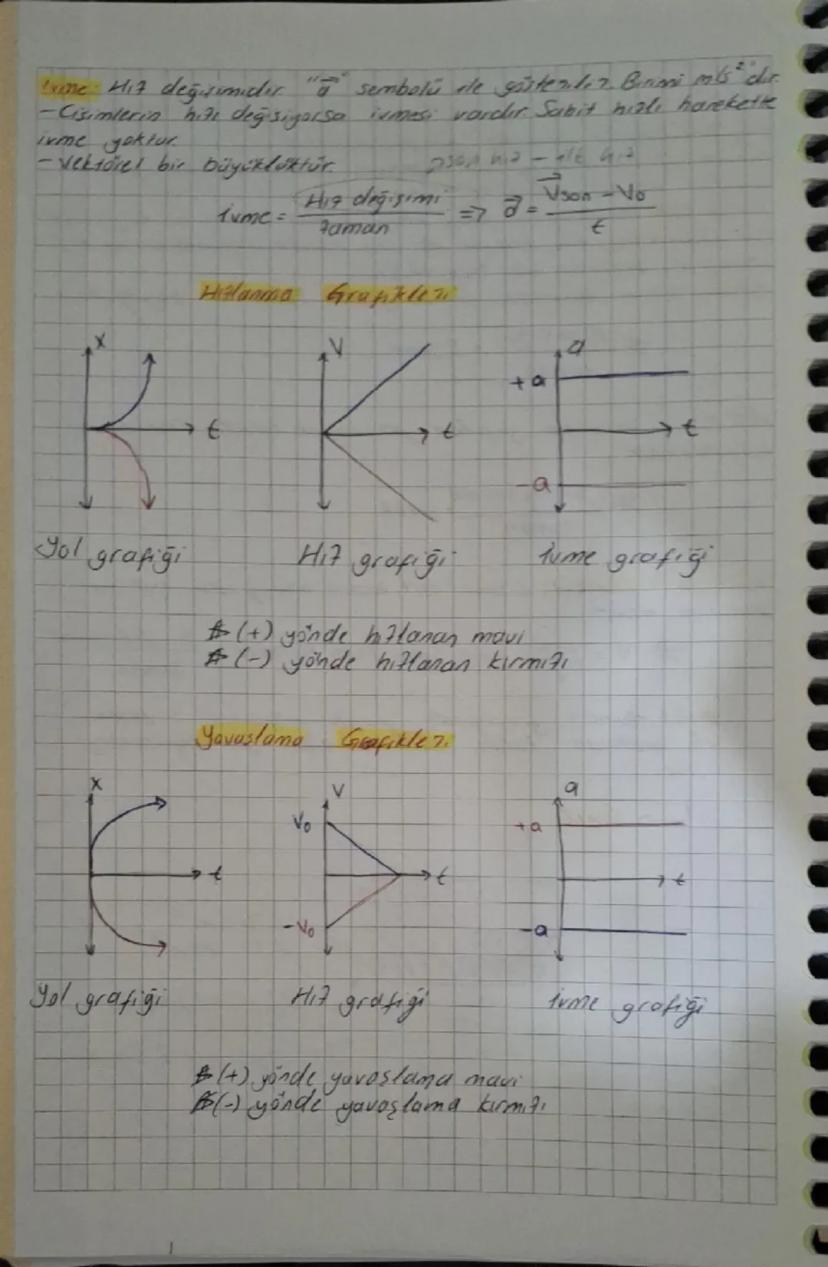 İvme: Hız değişimidir "a⃗" sembolü ile gösterilir. Birimi m/s² dir.
- Cisimlerin hızı değişiyorsa ivmesi vardır. Sabit hızlı harekette
ivme yoktur.
- Vektörel bir büyüklüktür.
son hız - ilk hız
ivme = Hız değişimi / zaman => a⃗ = V⃗son - V₀ / t
Hızlanma Grafikleri
x
t
V
t
a
+a
t
-a
Yol grafiği
Hız grafiği
ivme grafiği
(+) yönde hızlanan mavi
(-) yönde hızlanan kırmızı
Yavaşlama Grafikleri
x
t
V
V₀
t
-V₀
a
+a
t
-a
Yol grafiği
Hız grafiği
ivme grafiği
(+) yönde yavaşlama mavi
(-) yönde yavaşlama kırmızı